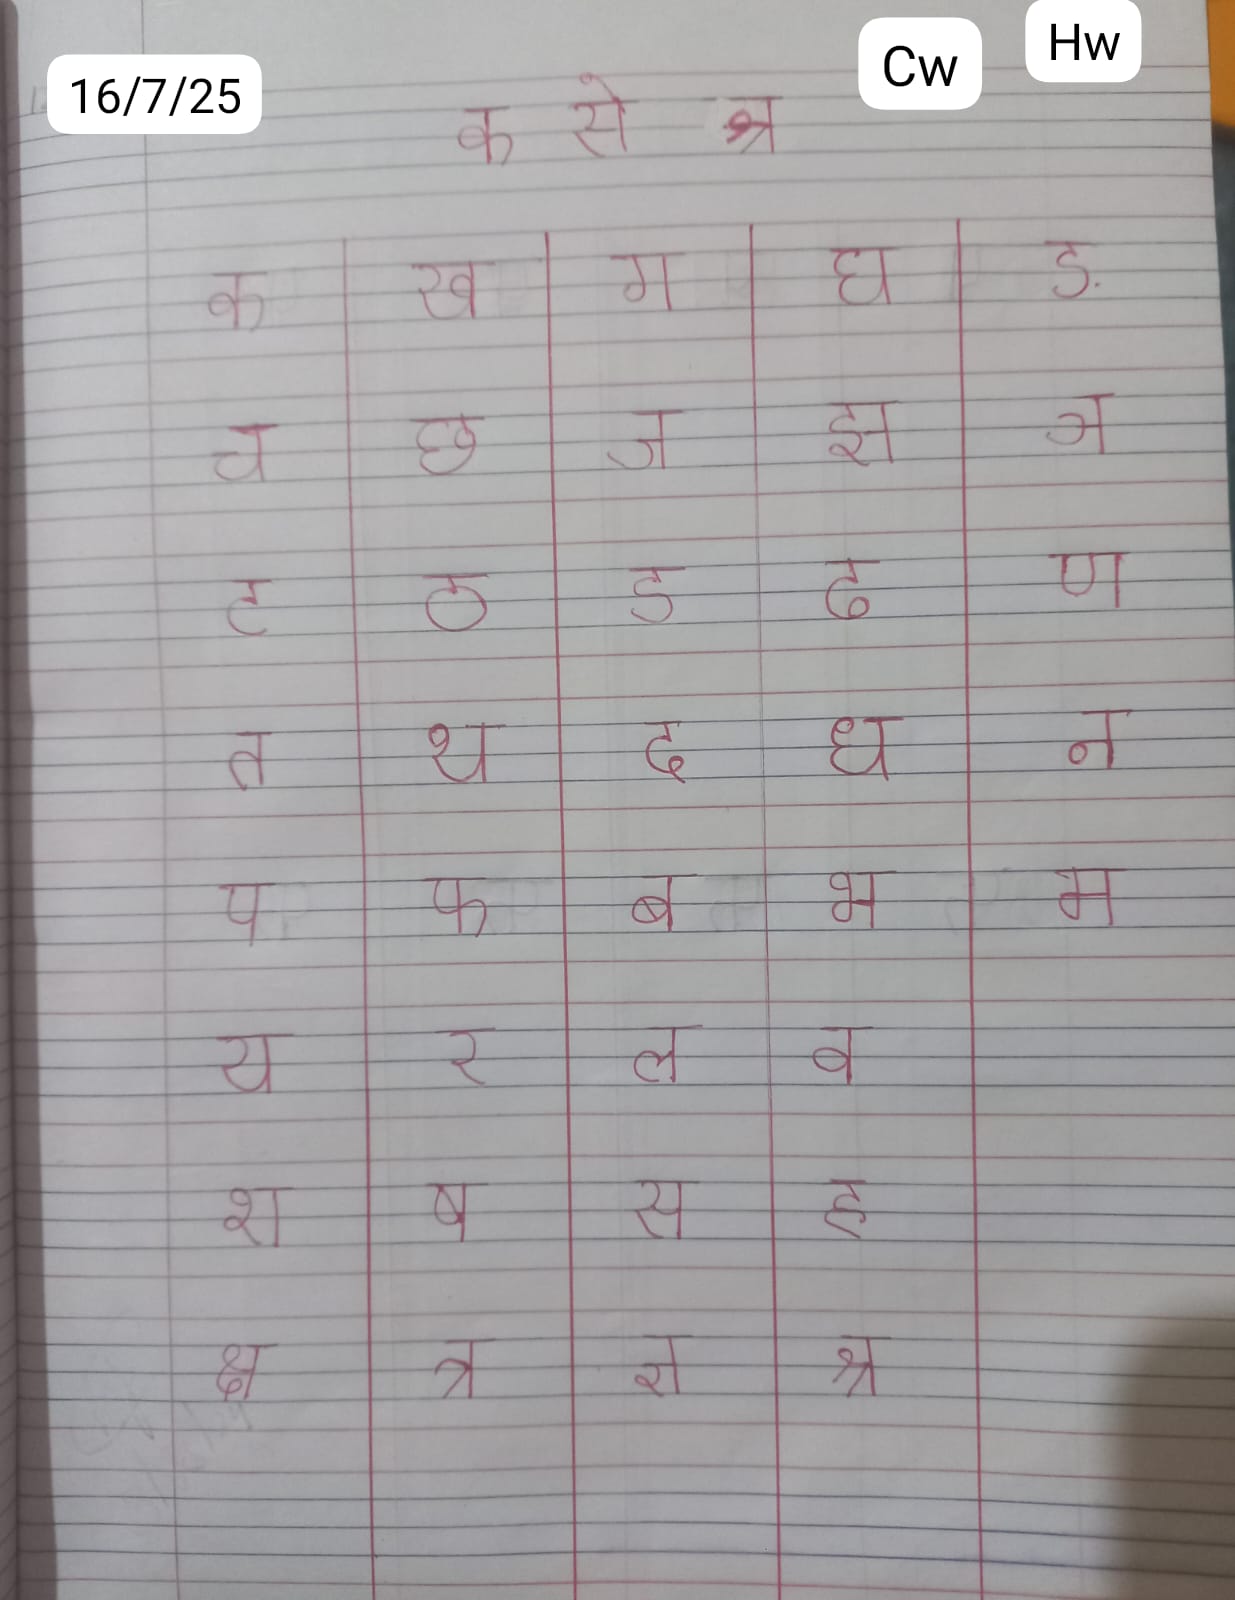 16/7/25 Cw Hw
क से श्र
क ख ग घ ङ
च छ ज झ ञ
ट ठ ड ढ ण
त थ द ध न
प फ ब भ म
य र ल व
श ष स ह
क्ष त्र ज्ञ श्र